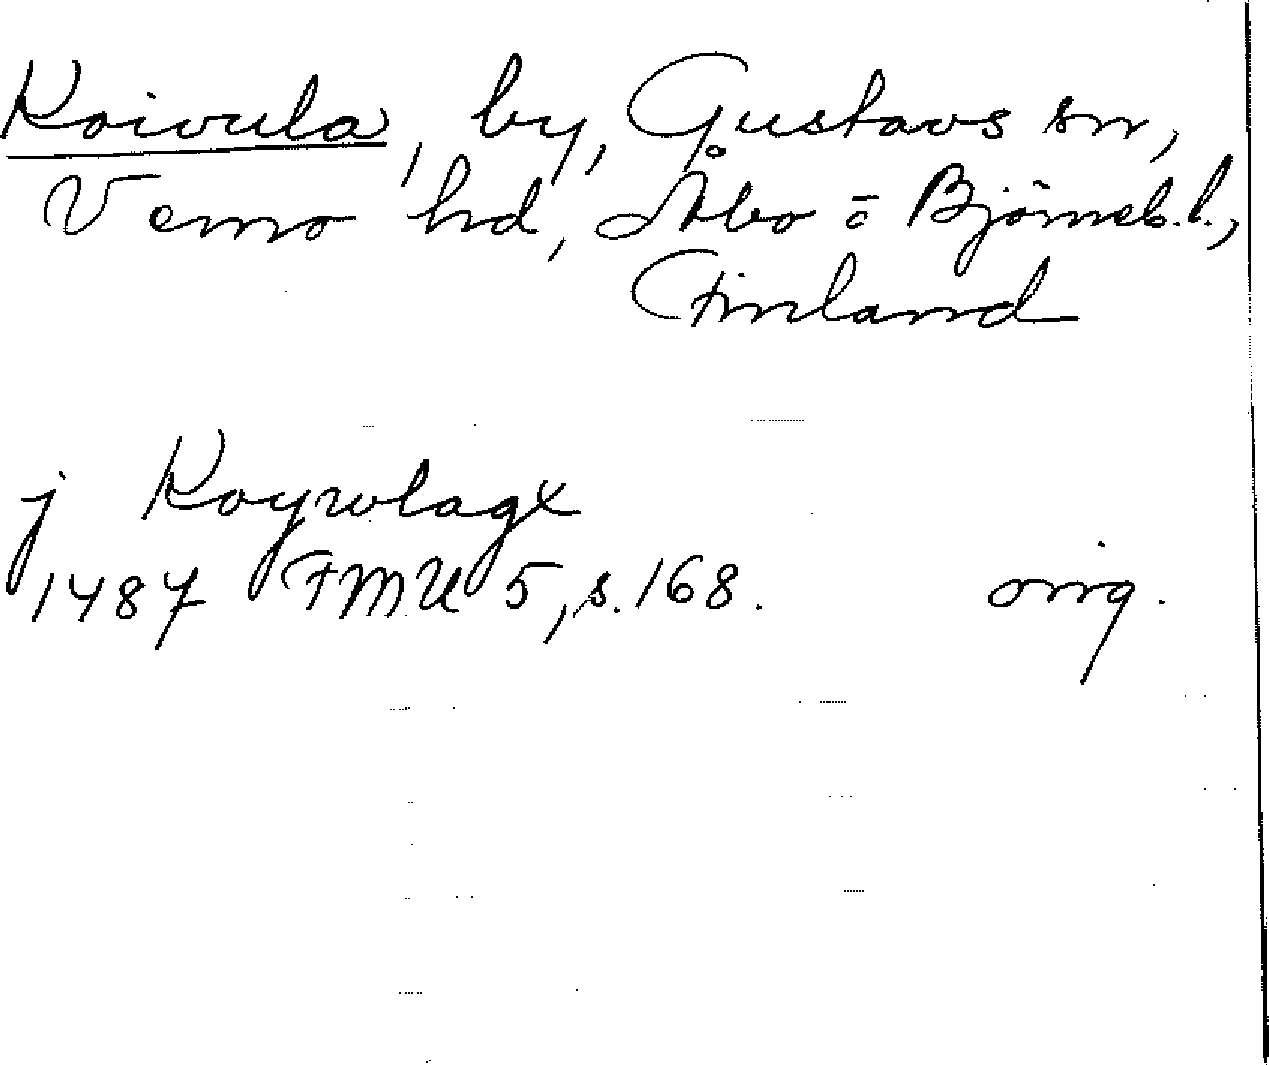 Koivula, by, Gustavs sn,
Vemo hd, Åbo o Björneb.l.,
Finland
j Koywlagx
1487 FMU 5, s. 168. orig.